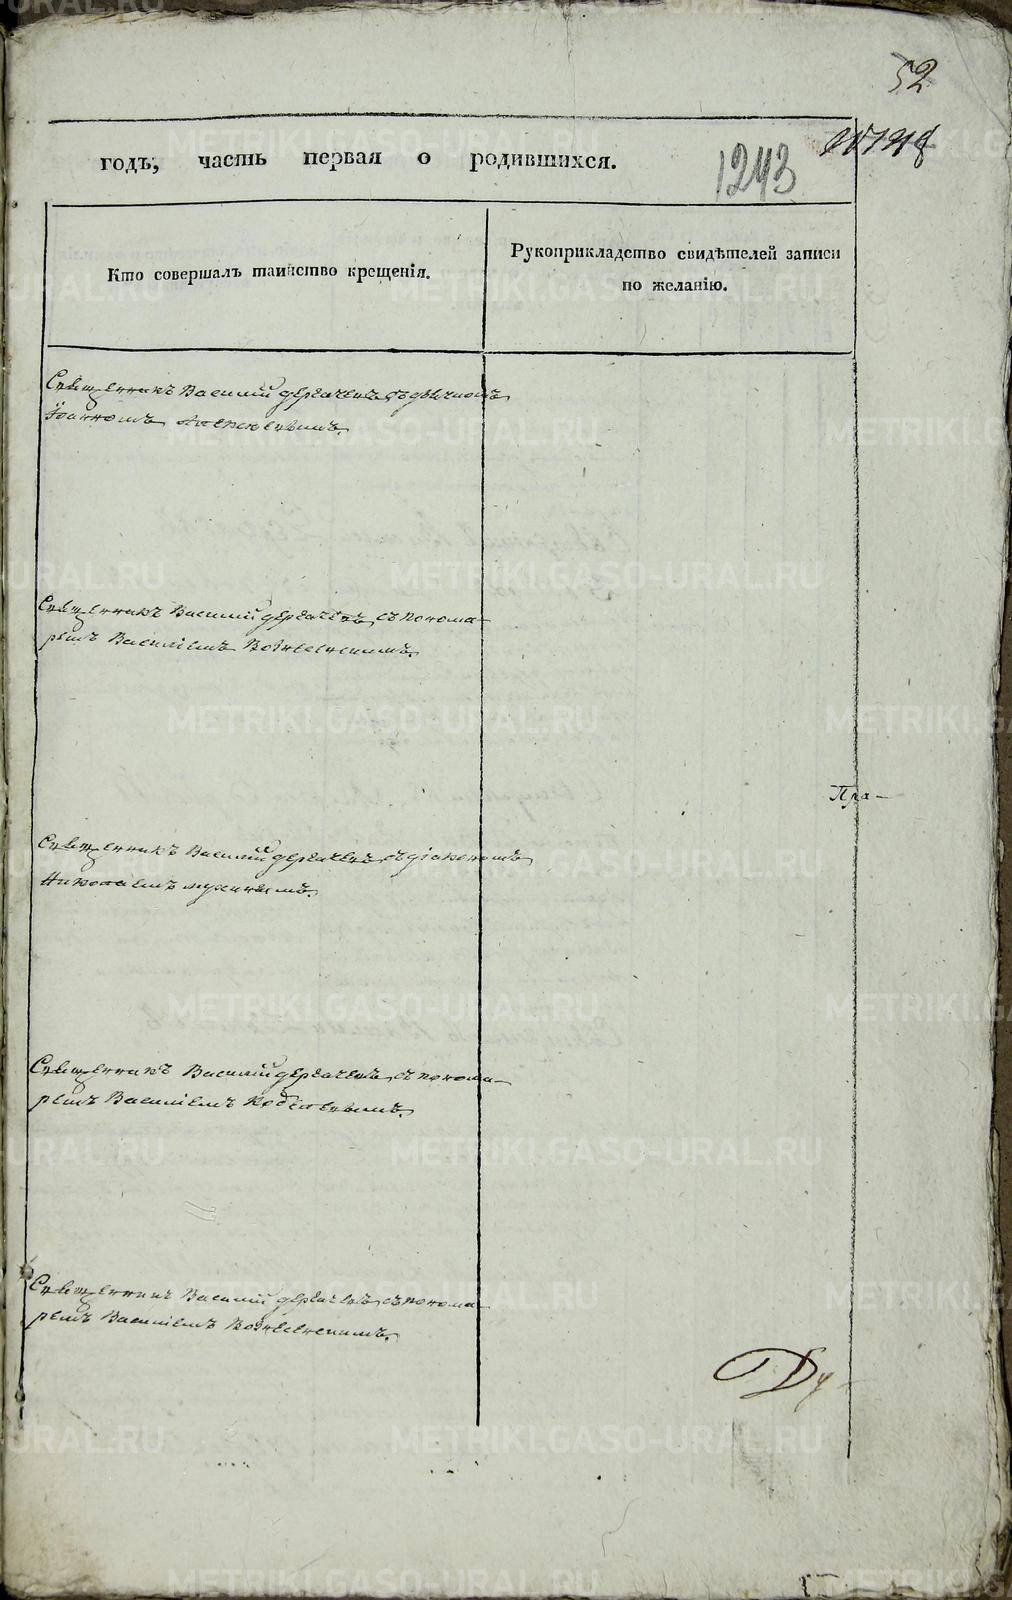 52
годъ, часть первая о родившихся.
1243
Кто совершалъ таинство крещенія.
Рукоприкладство свидѣтелей записи
по желанію.
Священникъ Василій Дергачевъ съ дьячкомъ
Іоанномъ
Священникъ Василій Дергачевъ, съ понома-
ремъ Василіемъ Вознесенскимъ.
Пра-
Священникъ Василій Дергачевъ, съ діакономъ
Николаемъ Мухинымъ.
Священникъ Василій Дергачевъ, съ понома-
ремъ Василіемъ
Священникъ Василій Дергачевъ, съ понома-
ремъ Василіемъ Вознесенскимъ.
Ду-
METRIKI.GASO-URAL.RU